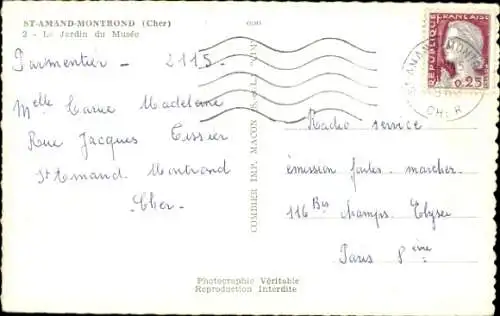 ST-AMAND-MONTROND (Cher)
2 - Le Jardin du Musée
Parmentier - 2115
Melle Carue Madeleine
Rue Jacques Tissier
St Amand Montrond
Cher
COMBIER IMP. MACON
REPUBLIQUE FRANÇAISE
0,25
CHER
Radio service
émission faites marcher
116 Bis Champs Elysée
Paris 8ème
Photographie Véritable
Reproduction Interdite